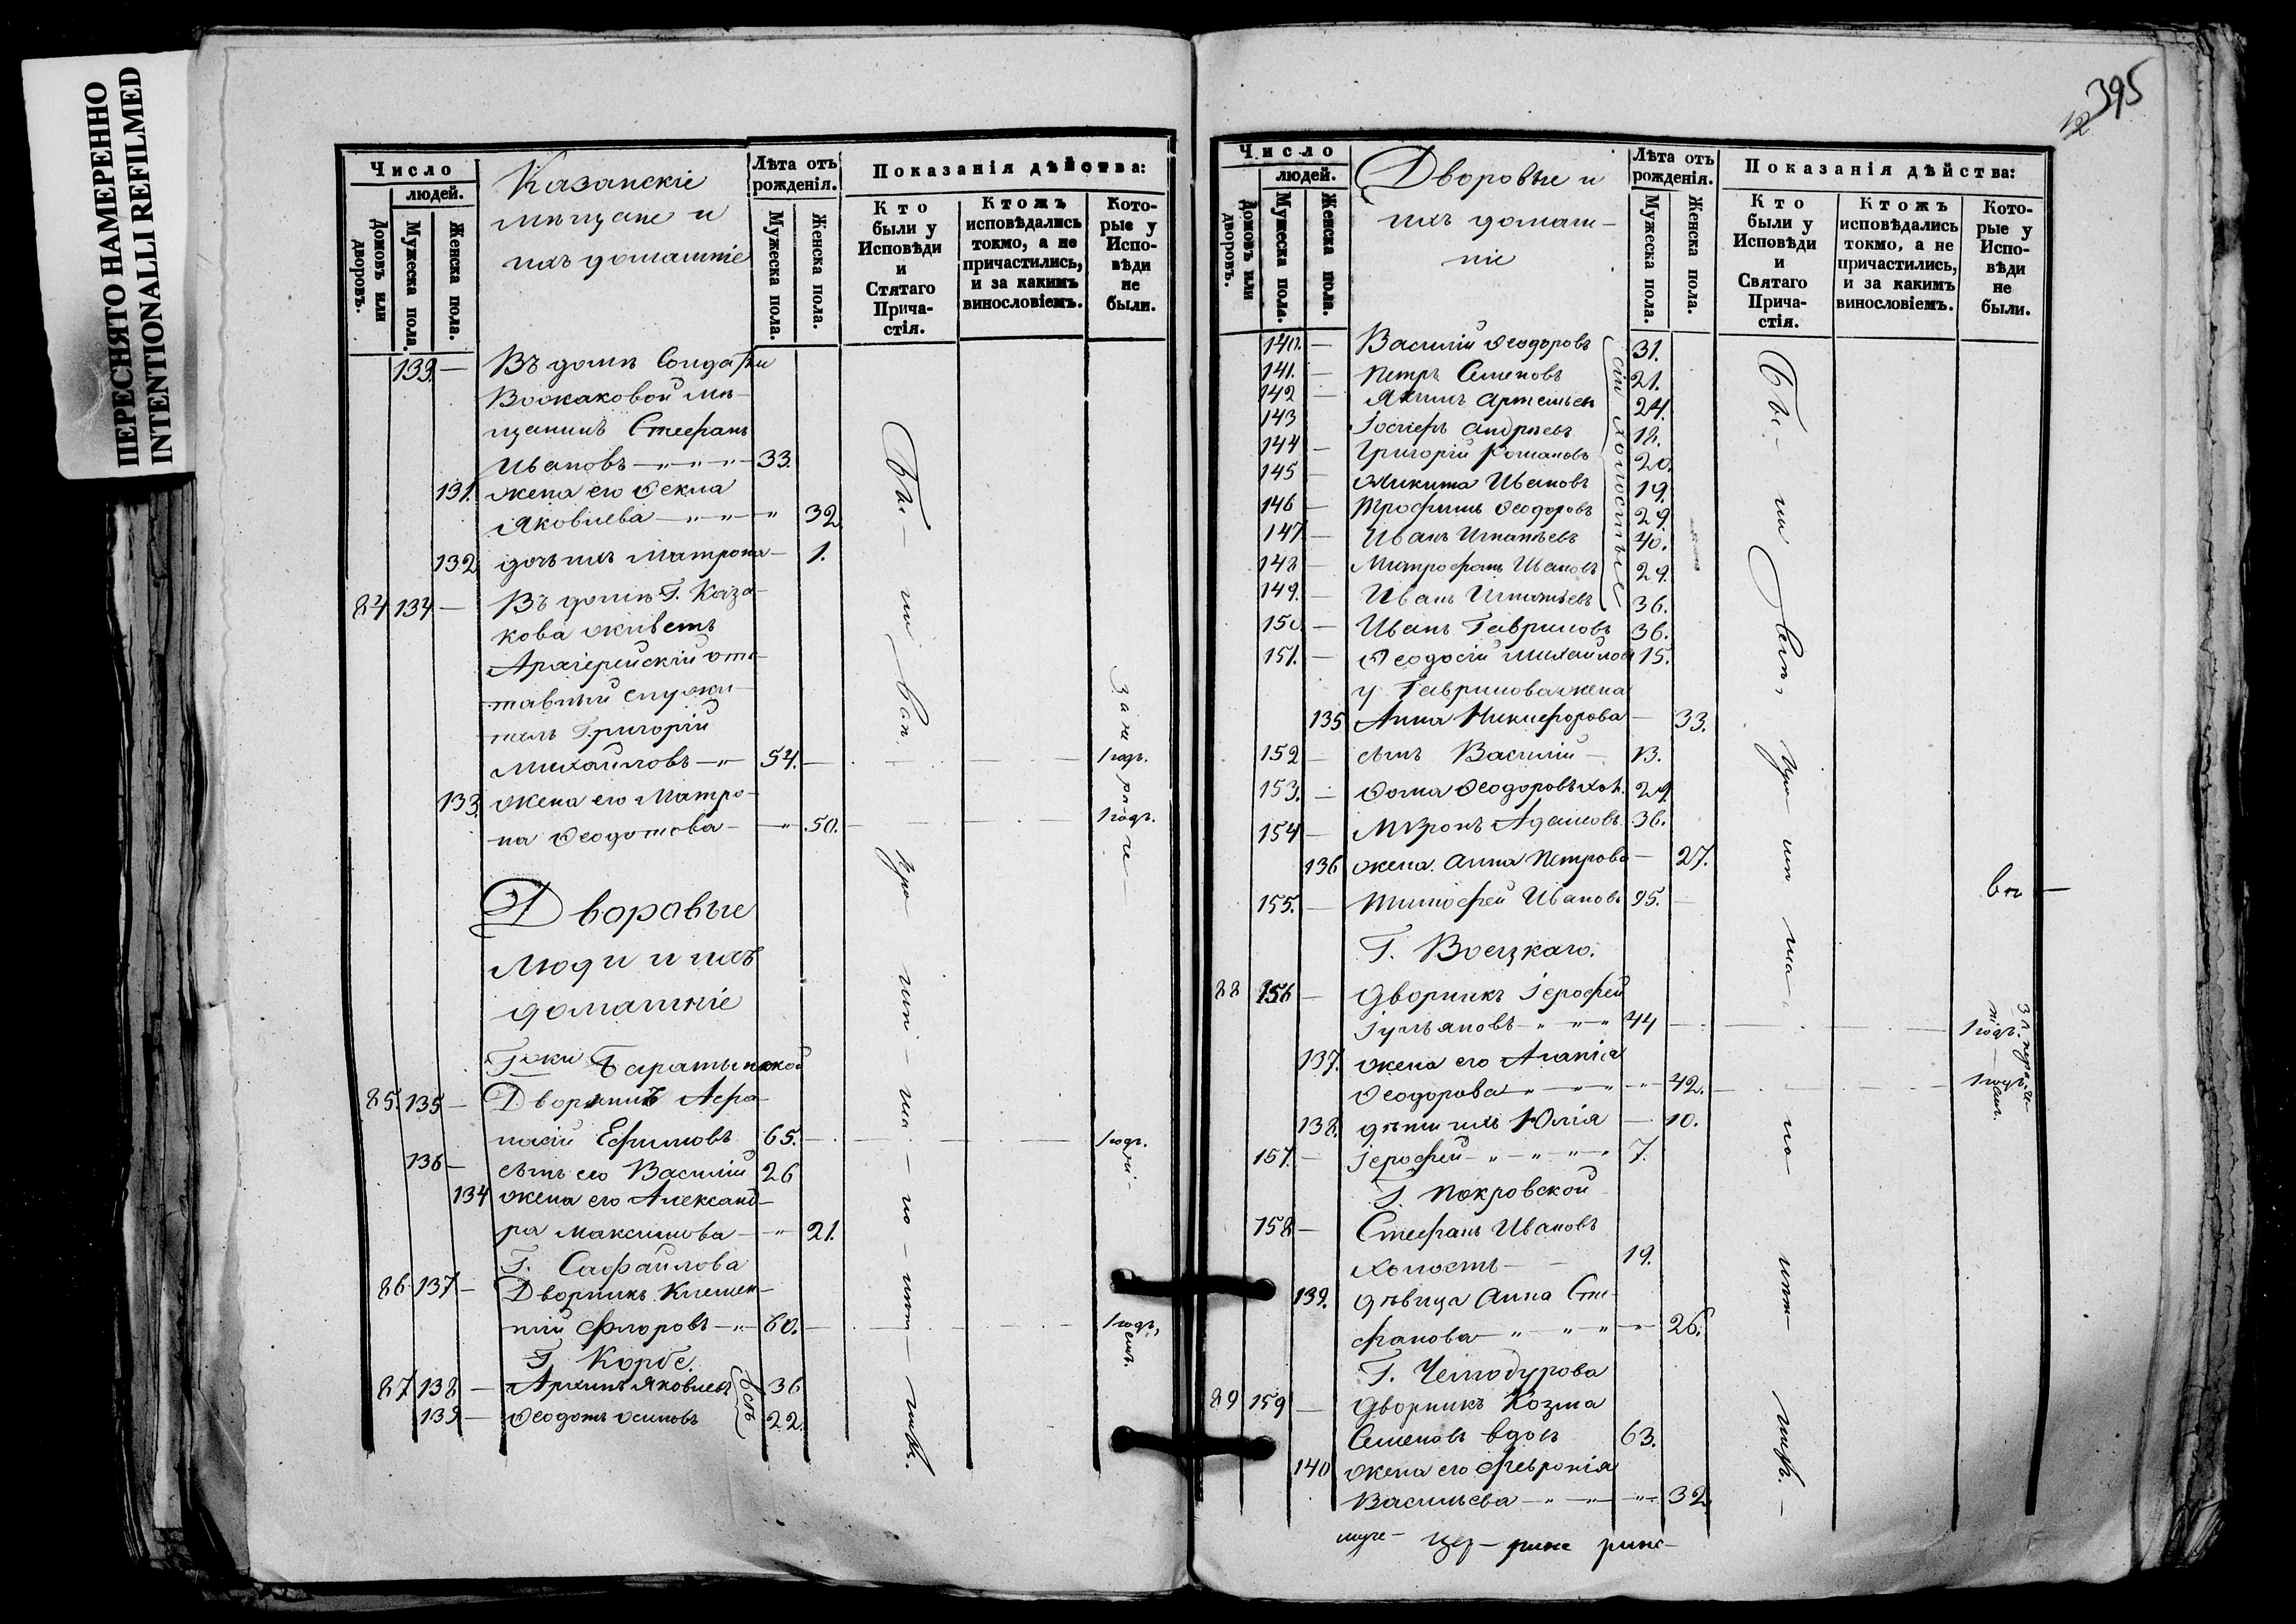 ПЕРЕСНЯТО НАМЕРЕННО
INTENTIONALLI REFILMED
Число
людей.
Домовъ или дворовъ.
Мужеска пола.
Женска пола.
Казанскіе
мѣщане и
ихъ домашніе
Лѣта отъ рожденія.
Мужеска пола.
Женска пола.
Показанія дѣйства:
Кто были у Исповѣди и Стятаго Прича-стія.
Ктожъ исповѣдались токмо, а не причастились, и за какимъ винословіемъ.
Кото-рые у Испо-вѣди не были.
133. — Въ домѣ Солдатки
мѣ-
щанинъ Стефанъ
Ивановъ 33.
131. жена его Фекла
Яковлева 32
132 дочь ихъ Матрона — 1.
84 134 — Въ домѣ Г. Каза-
кова живетъ
Архіерейскій отс-
тавный служи-
тель Григорій
Михайловъ 54. 1 годъ.
133. жена его Матро-
на Феодотова 50. 1 годъ.
Дворовые
люди и ихъ
домашніе
Г-жи Баратынской
85. 135 — Дворникъ Афа-
насій Ефимовъ 65. 1 годъ.
136 — сынъ его Василій 26
134 жена его Александ-
ра Максимова 21.
Г. Сафаилова
86. 137 — Дворникъ Климен-
тій Флоровъ 60. 1 годъ.
Г. Корбе.
87 138 — Архипъ Яковлевъ 36
139 — Феодотъ Осиповъ 22.
Бы- ли вси.
За не ра де ні емъ.
при ча- ща- ли-
395
12
Число
людей.
Домовъ или дворовъ.
Мужеска пола.
Женска пола.
Дворовые и
ихъ домаш-
ніе
Лѣта отъ рожденія.
Мужеска пола.
Женска пола.
Показанія дѣйства:
Кто были у Исповѣди и Святаго Прича-стія.
Ктожъ исповѣдались токмо, а не причастились, и за какимъ винословіемъ.
Кото-рые у Испо-вѣди не были.
140. — Василій Феодоровъ 31.
141. — Петръ Семеновъ 21.
142 — Якимъ Артемьевъ 24.
143 Іосифъ Андреевъ 18.
144 — Григорій Романовъ 20.
145 — Никита Ивановъ 19.
146 — Трофимъ Феодоровъ 29.
147 — Иванъ Игнатьевъ 40.
148 — Митрофанъ Ивановъ 29.
149. — Иванъ Игнатьевъ 36.
сіи холостые
150 — Иванъ Гавриловъ 36.
151. — Феодосій Михайловъ 15.
у Гаврилова жена
135 Анна Никифорова — 33.
152 сынъ Василій — 13.
153. — Фома Феодоровъ хол. 29.
154 — Миронъ Адамовъ 36.
136 жена Анна Петрова — 27.
155. — Тимофей Ивановъ 95.
Г. Воецкаго.
88 156 — Дворникъ Іерофей
Іульяновъ 44 1 годъ.
137. жена его Агапія
Феодорова 42. 1 годъ.
138. дѣти ихъ Юлія — 10.
157. — Іерофей 7.
Г. Покровской
158 — Стефанъ Ивановъ
холостъ 19.
139. дѣвица Анна Сте-
фанова 26.
Г. Чемодурова
89 159 — Дворникъ Козма
Семеновъ вдовъ 63.
140 жена его Февронія
Васильева 32.